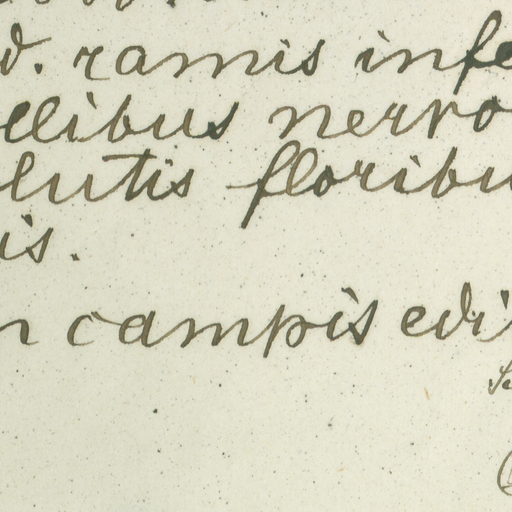 d. ramis infe
llibus nervo
lutis floribu
is.
n campis edi